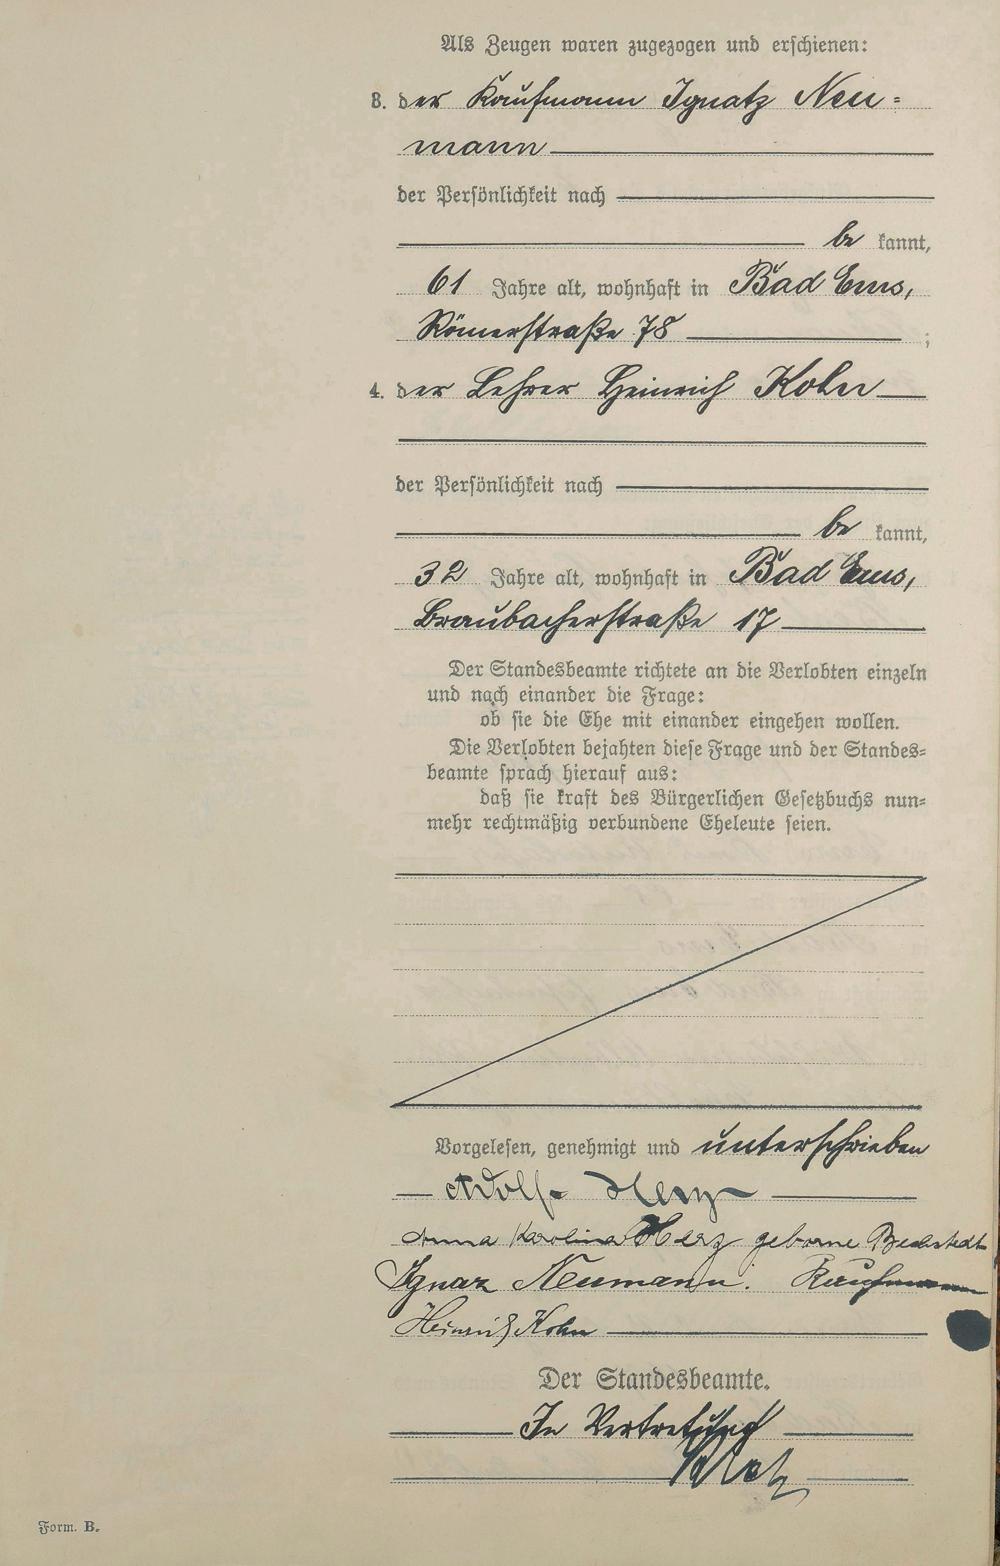 Als Zeugen waren zugezogen und erschienen:
3. der Kaufmann Ignatz Neu=
mann
der Persönlichkeit nach
be kannt,
61 Jahre alt, wohnhaft in Bad Ems,
Römerstraße 78 ;
4. der Lehrer Heinrich Kohn
der Persönlichkeit nach
be kannt,
32 Jahre alt, wohnhaft in Bad Ems,
Braubacherstraße 17
Der Standesbeamte richtete an die Verlobten einzeln
und nach einander die Frage:
ob sie die Ehe mit einander eingehen wollen.
Die Verlobten bejahten diese Frage und der Standes=
beamte sprach hierauf aus:
daß sie kraft des Bürgerlichen Gesetzbuchs nun=
mehr rechtmäßig verbundene Eheleute seien.
Vorgelesen, genehmigt und unterschrieben
Adolf Herz
Anna Karolina Herz geborne Bechstedt
Ignaz Neumann. Kaufmann
Heinrich Kohn
Der Standesbeamte.
In Vertretung
Form. B.